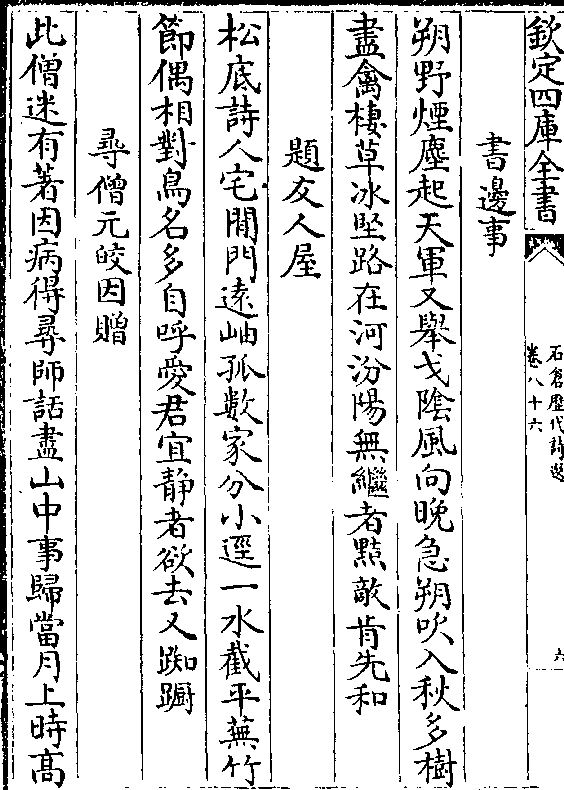 欽定四庫全書
石倉歷代詩選
卷八十六
六
書邊事
朔野煙塵起天軍又舉戈陰風向晚急朔吹入秋多樹
盡禽棲草冰堅路在河汾陽無繼者黠敵肯先和
題友人屋
松底詩人宅閒門遠岫孤數家分小逕一水截平蕪竹
節偶相對鳥名多自呼愛君宜靜者欲去又踟蹰
尋僧元皎因贈
此僧迷有著因病得尋師話盡山中事歸當月上時高